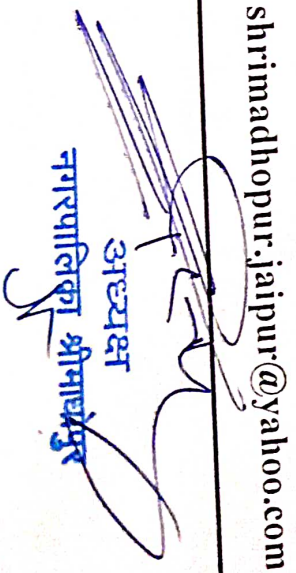 shrimadhopur.jaipur@yahoo.com
अध्यक्ष
नगरपालिका श्रीमाधोपुर